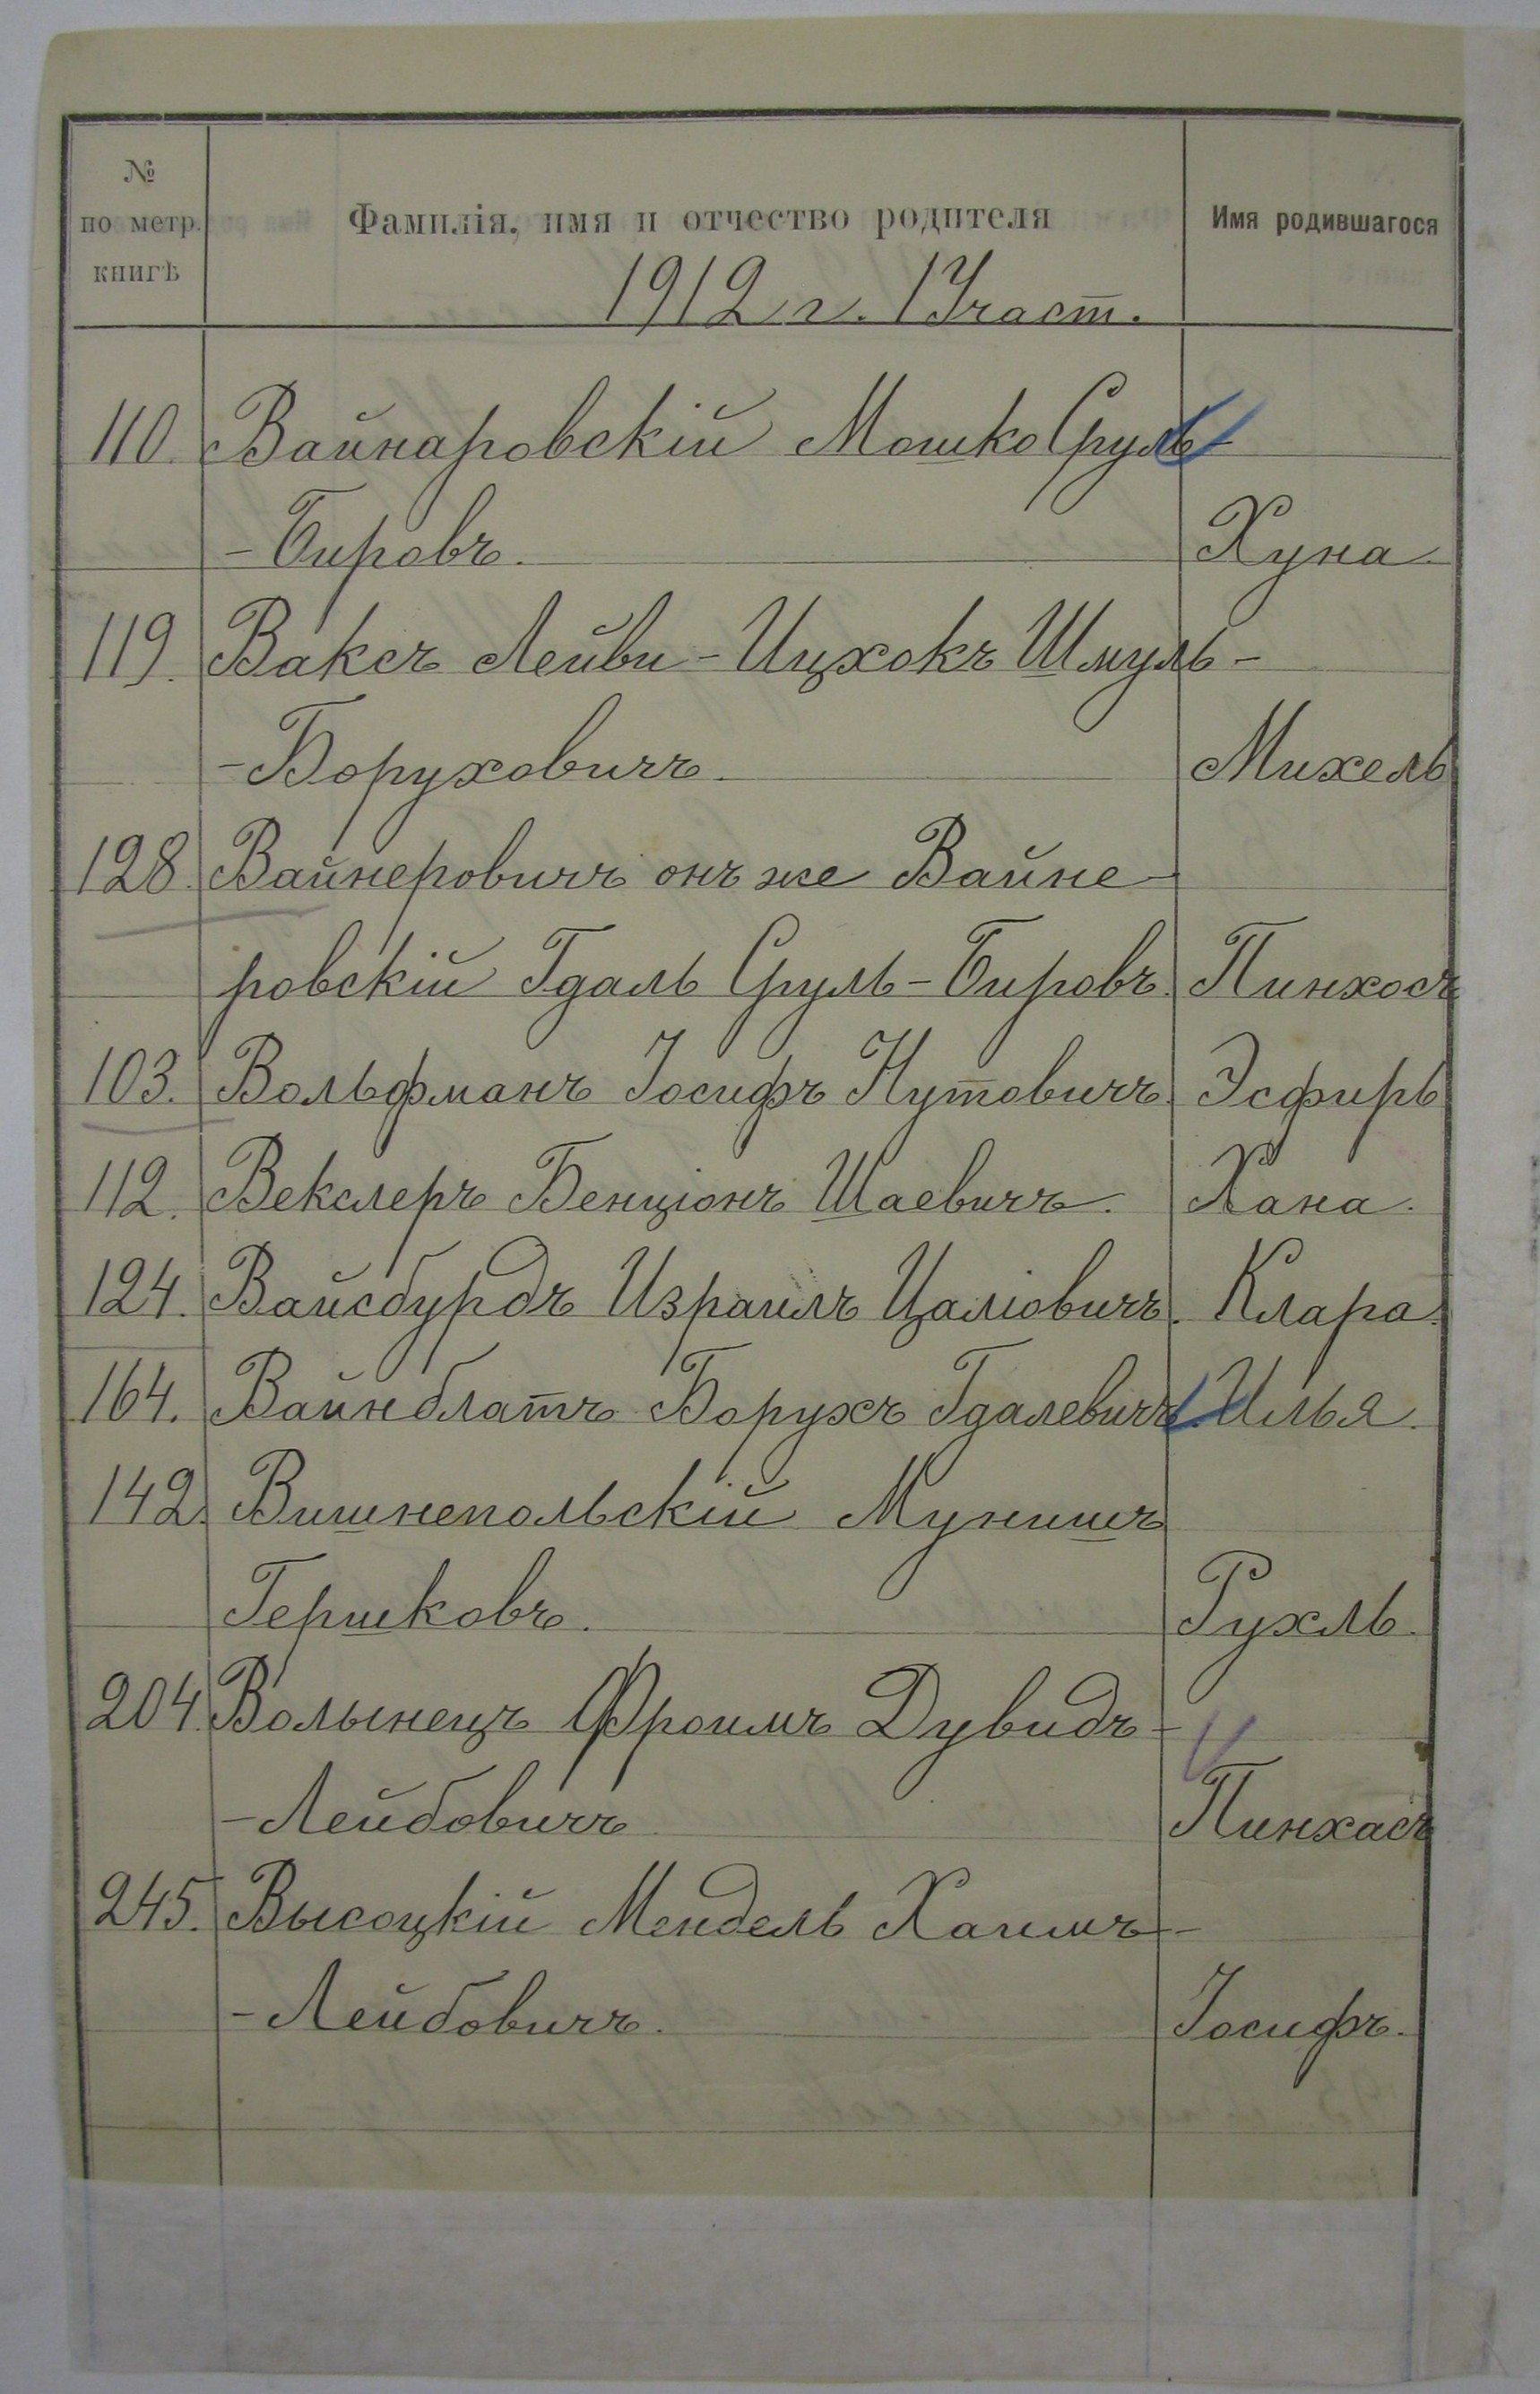 № по метр. книгѣ Фамилія, имя и отчество родителя Имя родившагося
1912 г. 1 Участ.
110. Вайнаровскій Мошко Сруль-
-Бировъ. Хуна.
119.Ваксъ Лейви-Ицхокъ Шмуль-
-Боруховичъ. Михель
128. Вайнеровичъ онъ же Вайне-
ровскій Гдаль Сруль-Бировъ. Пинхосъ
103. Вольфманъ Іосифъ Нутовичъ. Эсфирь
112. Векслеръ Бенціонъ Шаевичъ. Хана.
124. Вайсбурдъ Израиль Цаліовичъ. Клара.
164. Вайнблатъ Борухъ Гдалевичъ. Илья.
142. Вишнепольскій Мунишъ
Гершковъ. Рухль.
204. Волынецъ Фроимъ Дувидъ-
-Лейбовичъ Пинхасъ
245. Высоцкій Мендель Хаимъ-
-Лейбовичъ. Іосифъ.